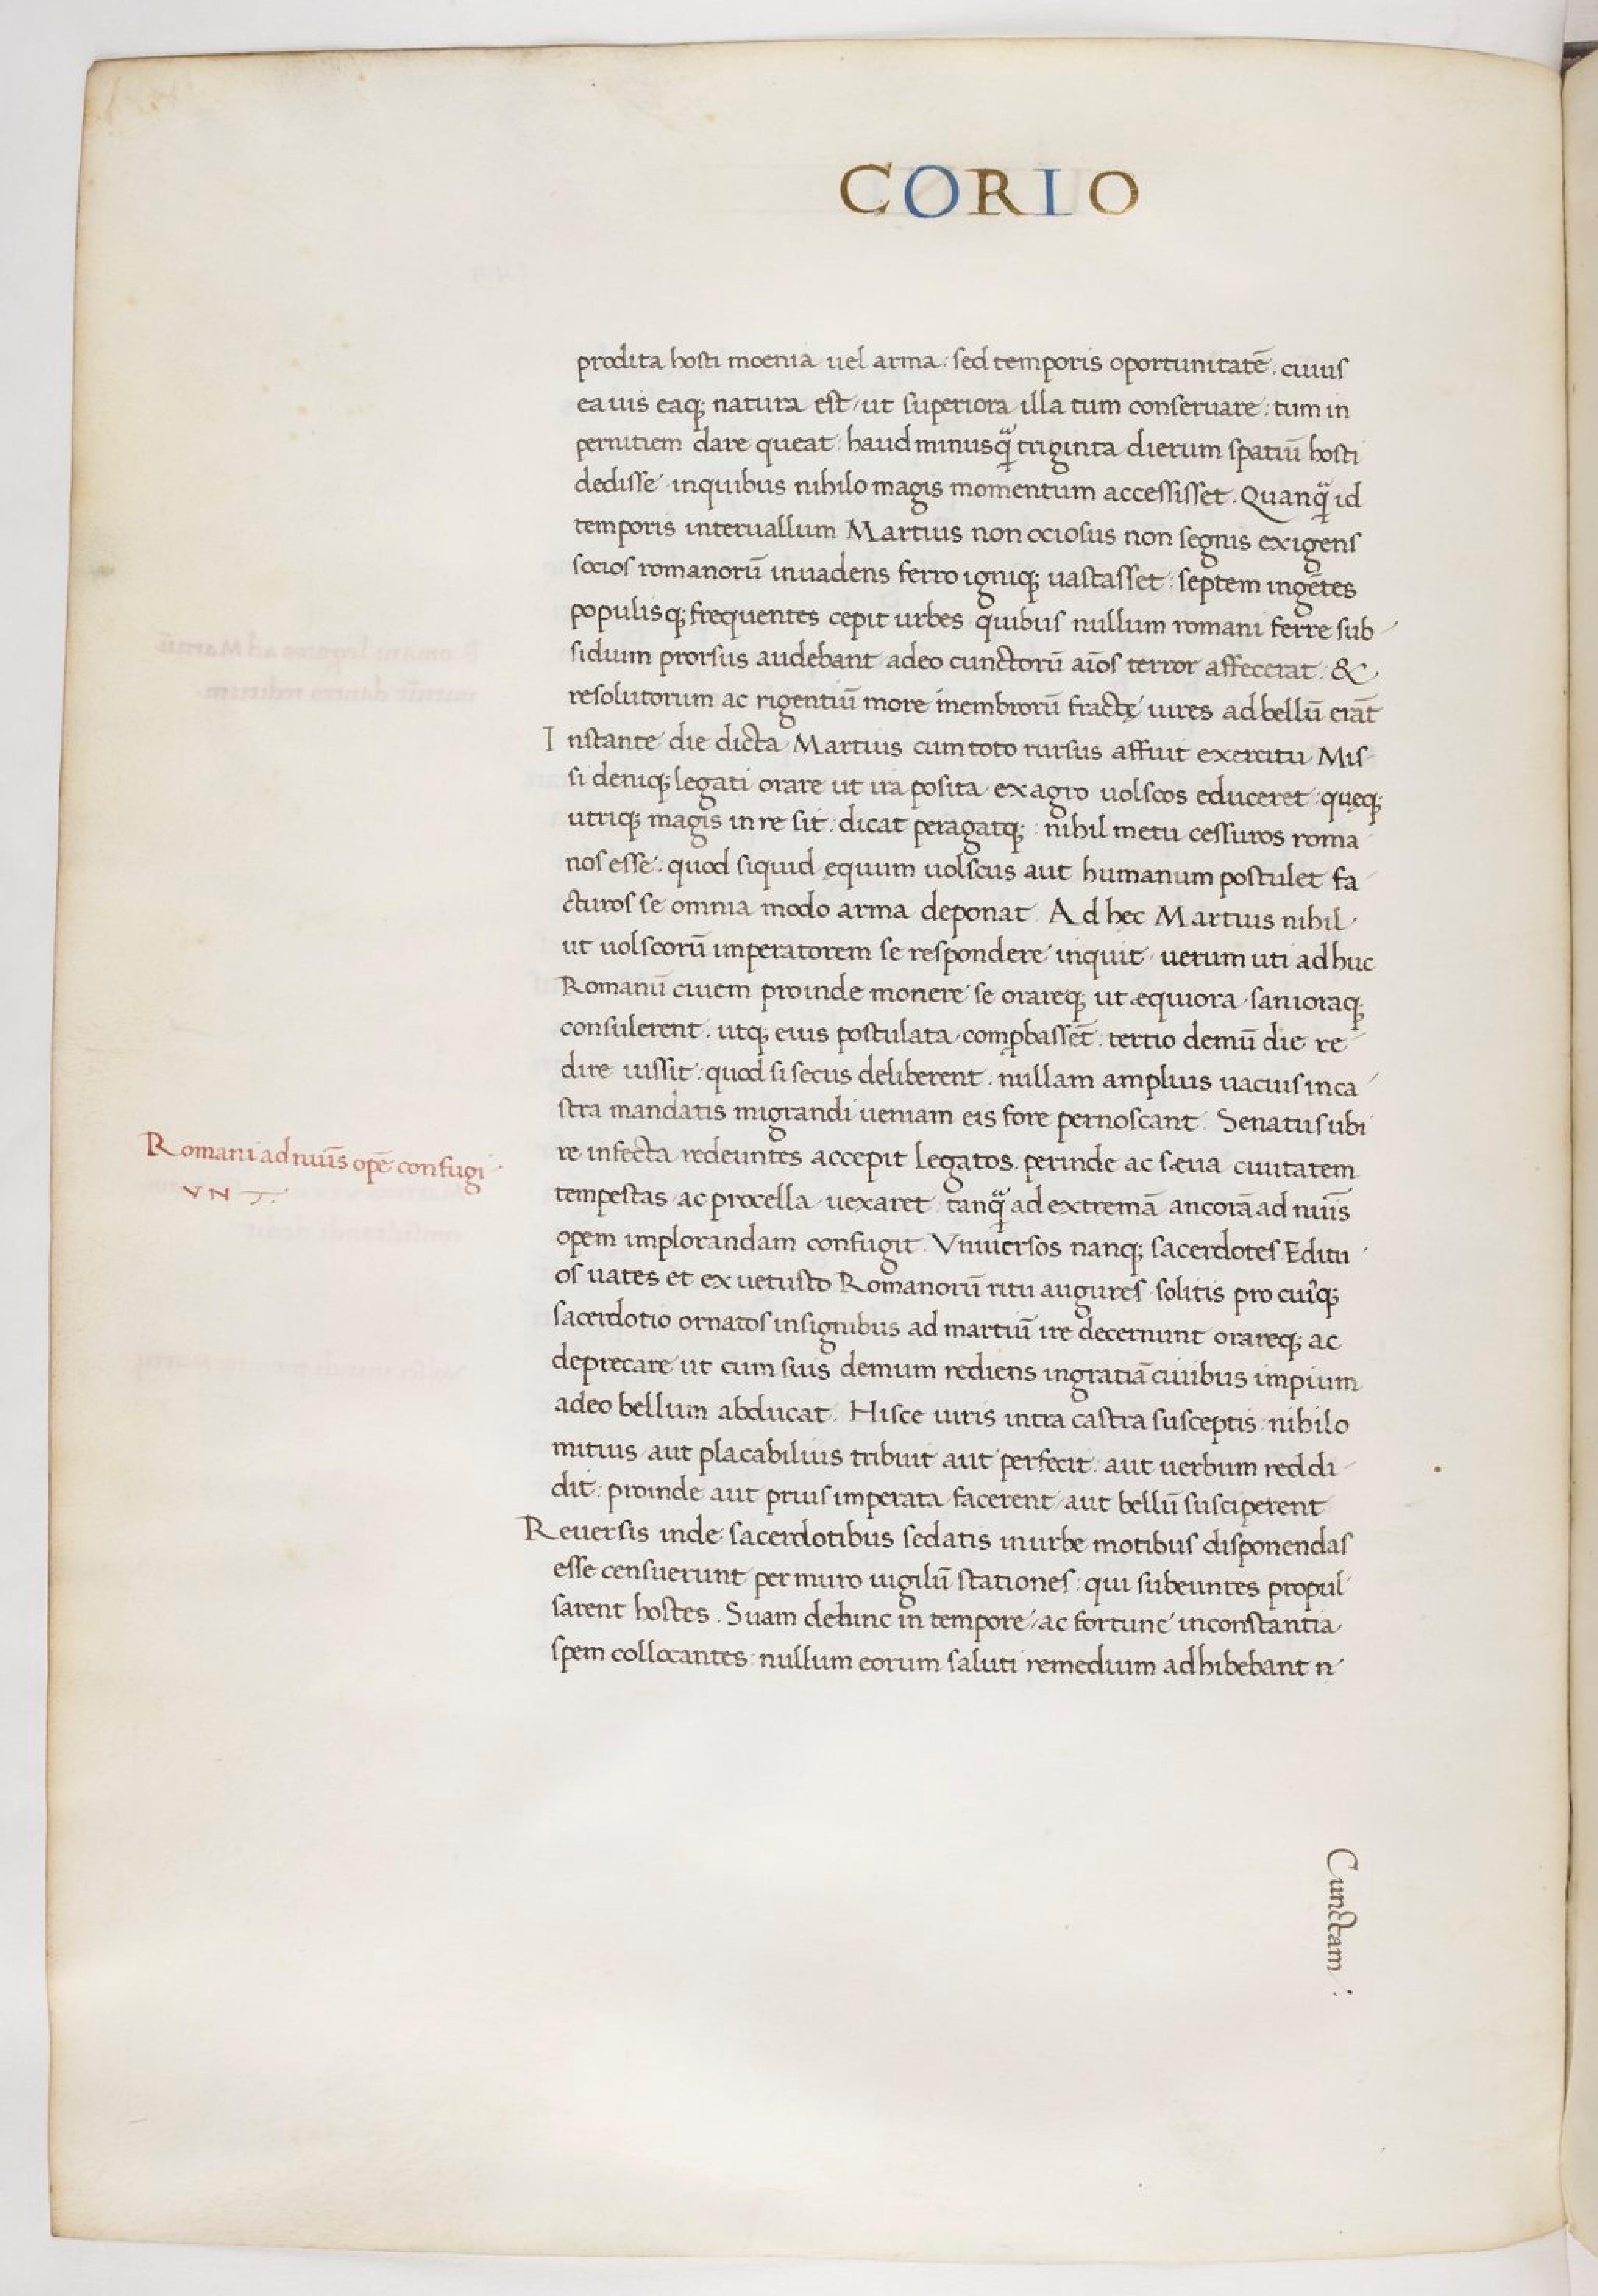 CORIO
prodita hosti moenia uel arma: sed temporis oportunitatē. cuius
ea uis eaq; natura est, ut superiora illa tum conseruare: tum in
pernitiem dare queat: haud minusq̈ triginta dierum spatiū hosti
dedisse inquibus nihilo magis momentum accessisset. Quanq̈ id
temporis interuallum Martius non ociosus non segnis exigens
socios romanorū inuadens ferro igniq; uastasset: septem ingētes
populisq; frequentes cepit urbes quibus nullum romani ferre sub
sidium prorsus audebant adeo cunctorū aīos terror affecerat: &
resolutorum ac rigentiū more membrorū fractę uires ad bellū erāt
Instante die dicta Martius cum toto rursus affuit exercitu Mis
si deniq; legati orare ut ira posita ex agro uolscos educeret: quęq;
utriq; magis in re sit: dicat peragatq;: nihil metu cessuros roma
nos esse: quod siquid equum uolscus aut humanum postulet fa
cturos se omnia modo arma deponat. Ad hec Martius nihil
ut uolscorū imperatorem se respondere inquit uerum uti ad huc
Romanū ciuem proinde monere se orareq; ut æquiora sanioraq;
consulerent. utq; eius postulata comꝓbassēt: tertio demū die re
dire iussit: quod si secus deliberent: nullam amplius uacuis in ca
stra mandatis migrandi ueniam eis fore pernoscant. Senatus ubi
re infecta redeuntes accepit legatos. perinde ac sæua ciuitatem
tempestas ac procella uexaret: tanq̈ ad extremā ancorā ad nuīs
opem implorandam confugit. Vniuersos nanq; sacerdotes Editu
os uates et ex uetusto Romanorū ritu augures solitis pro cuiq;
sacerdotio ornatos insignibus ad martiū ire decernunt orareq; ac
deprecare ut cum suis demum rediens in gratiā ciuibus impium
adeo bellum abducat. Hisce uiris intra castra susceptis nihilo
mitius aut placabilius tribuit aut perfecit: aut uerbum reddi
dit: proinde aut prius imperata facerent aut bellū susciperent
Reuersis inde sacerdotibus sedatis in urbe motibus disponendas
esse censuerunt per muro uigilū stationes: qui subeuntes propul
sarent hostes. Suam dehinc in tempore, ac fortune inconstantia
spem collocantes: nullum eorum saluti remedium adhibebant n
Romani ad nuīs opē confugi
VNT.
Cunctam